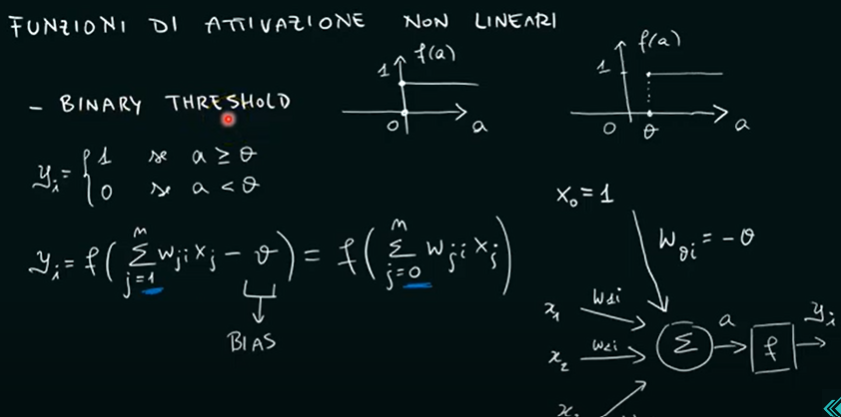 FUNZIONI DI ATTIVAZIONE NON LINEARI
- BINARY THRESHOLD
1 f(a)
0 a
1 f(a)
0 θ a
y_i = { 1 se a ≥ θ
0 se a < θ
x_0 = 1
w_0i = -θ
y_i = f( Σ_{j=1}^{m} w_ji x_j - θ ) = f( Σ_{j=0}^{m} w_ji x_j )
BIAS
x_1 w_1i
x_2 w_2i Σ a f y_i